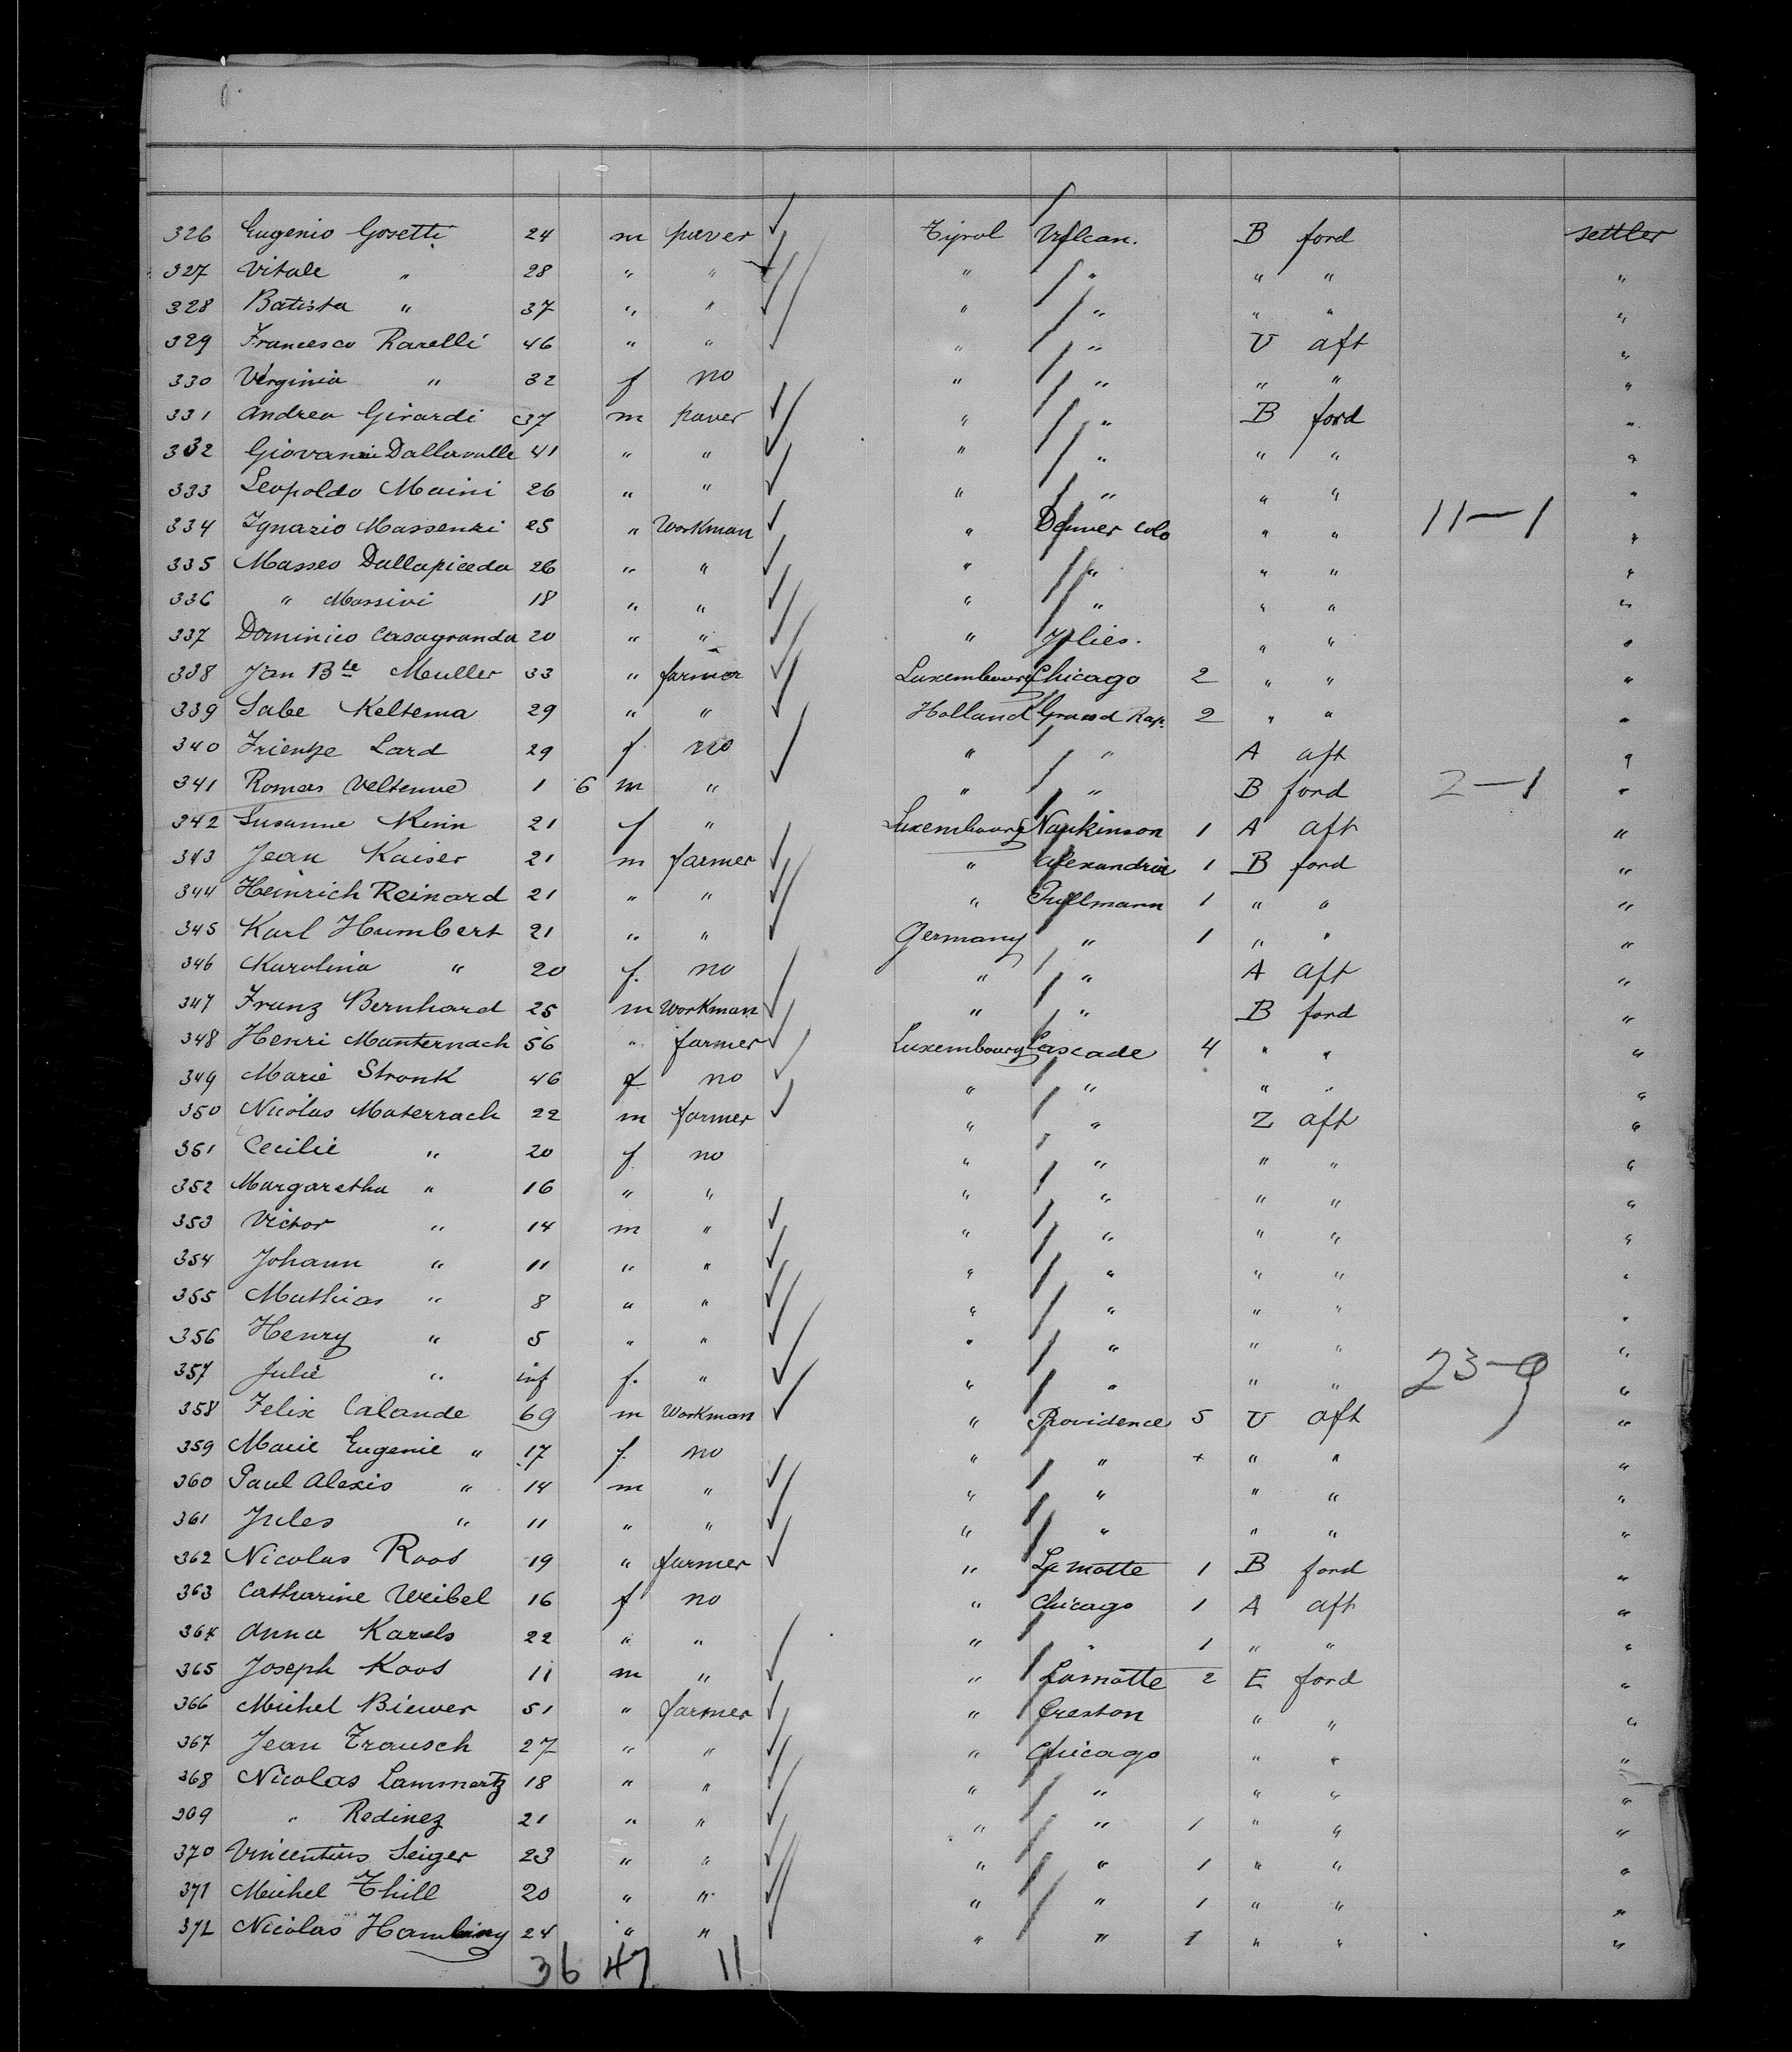 326 Eugenio Gosetti 24 m paver Tyrol Vulcan. B ford settler
327 Vitale " 28 " " " " " " "
328 Batista " 37 " " " " " " "
329 Francesco Rarelli 46 " " " " U aft "
330 Virginia " 32 f no " " " " "
331 Andrea Girardi 37 m paver " " B ford "
332 Giovanni Dallavalle 41 " " " " " " "
333 Leopoldo Maini 26 " " " " " " "
334 Ignazio Massenzi 25 " Workman " Denver Colo " " 11-1 "
335 Masseo Dallapiceda 26 " " " " " " "
336 " Massivi 18 " " " " " " "
337 Dominico Casagranda 20 " " " Jolies. " " "
338 Jan Bte Muller 33 " farmer Luxembourg Chicago 2 " " "
339 Sabe Keltema 29 " " Holland Grand Rap. 2 " " "
340 Lard 29 f no " " A aft "
341 Romas Veltenue 1 6 m " " " B ford 2-1 "
342 Susanne Kinn 21 f " Luxembourg Nankinson 1 A aft "
343 Jean Kaiser 21 m farmer " Alexandria 1 B ford "
344 Heinrich Reinard 21 " " " Pullmann 1 " " "
345 Karl Humbert 21 " " Germany " 1 " " "
346 Karolina " 20 f. no " " A aft "
347 Franz Bernhard 25 m Workman " " B ford "
348 Henri Manternach 56 " farmer Luxembourg Cascade 4 " " "
349 Marie Stronk 46 f no " " " " "
350 Nicolas Materrach 22 m farmer " " Z aft "
351 Cecilie " 20 f no " " " " "
352 Margaretha " 16 " " " " " " "
353 Victor " 14 m " " " " " "
354 Johann " 11 " " " " " " "
355 Mathias " 8 " " " " " " "
356 Henry " 5 " " " " " " "
357 Julie " inf f. " " " " " 23-9 "
358 Felix Calande 69 m Workman " Providence 5 U aft "
359 Marie Eugenie " 17 f. no " " + " " "
360 Paul Alexis " 14 m " " " " " "
361 Jules " 11 " " " " " " "
362 Nicolas Roos 19 " farmer " Lamotte 1 B ford "
363 Catharine Weibel 16 f no " Chicago 1 A aft "
364 Anna Karels 22 " " " " 1 " " "
365 Joseph Koos 11 m " " Lamotte 2 E ford "
366 Michel Biewer 51 " farmer " Creston " " "
367 Jean Trausch 27 " " " Chicago " " "
368 Nicolas Lammertz 18 " " " " " " "
369 " Redinez 21 " " " " 1 " " "
370 Vincentius Seiger 23 " " " " 1 " " "
371 Michel Thill 20 " " " " 1 " " "
372 Nicolas 24 " " " " 1 " " "
36 47 11